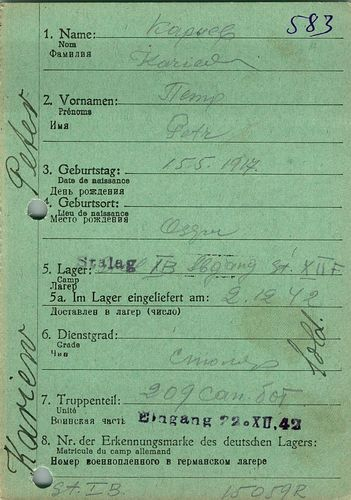 583
1. Name: Кариев
Nom
Фамилия Kariew
2. Vornamen: Петр
Prénoms
Имя Petr
3. Geburtstag: 15.5.1917.
Date de naissance
День рождения
4. Geburtsort:
Lieu de naissance
Место рождения
5. Lager: Stalag XB Abgang St. XII F
Camp
Лагерь
5a. Im Lager eingeliefert am: 2.12.42
Доставлен в лагерь (число)
6. Dienstgrad: Sold.
Grade
Чин
7. Truppenteil: 209 сан.бот
Unité
Воинская часть Eingang 22.XII.42
8. Nr. der Erkennungsmarke des deutschen Lagers:
Matricule du camp allemand
Номер военнопленного в германском лагере
St. I B. 15059R
Kariew Peter